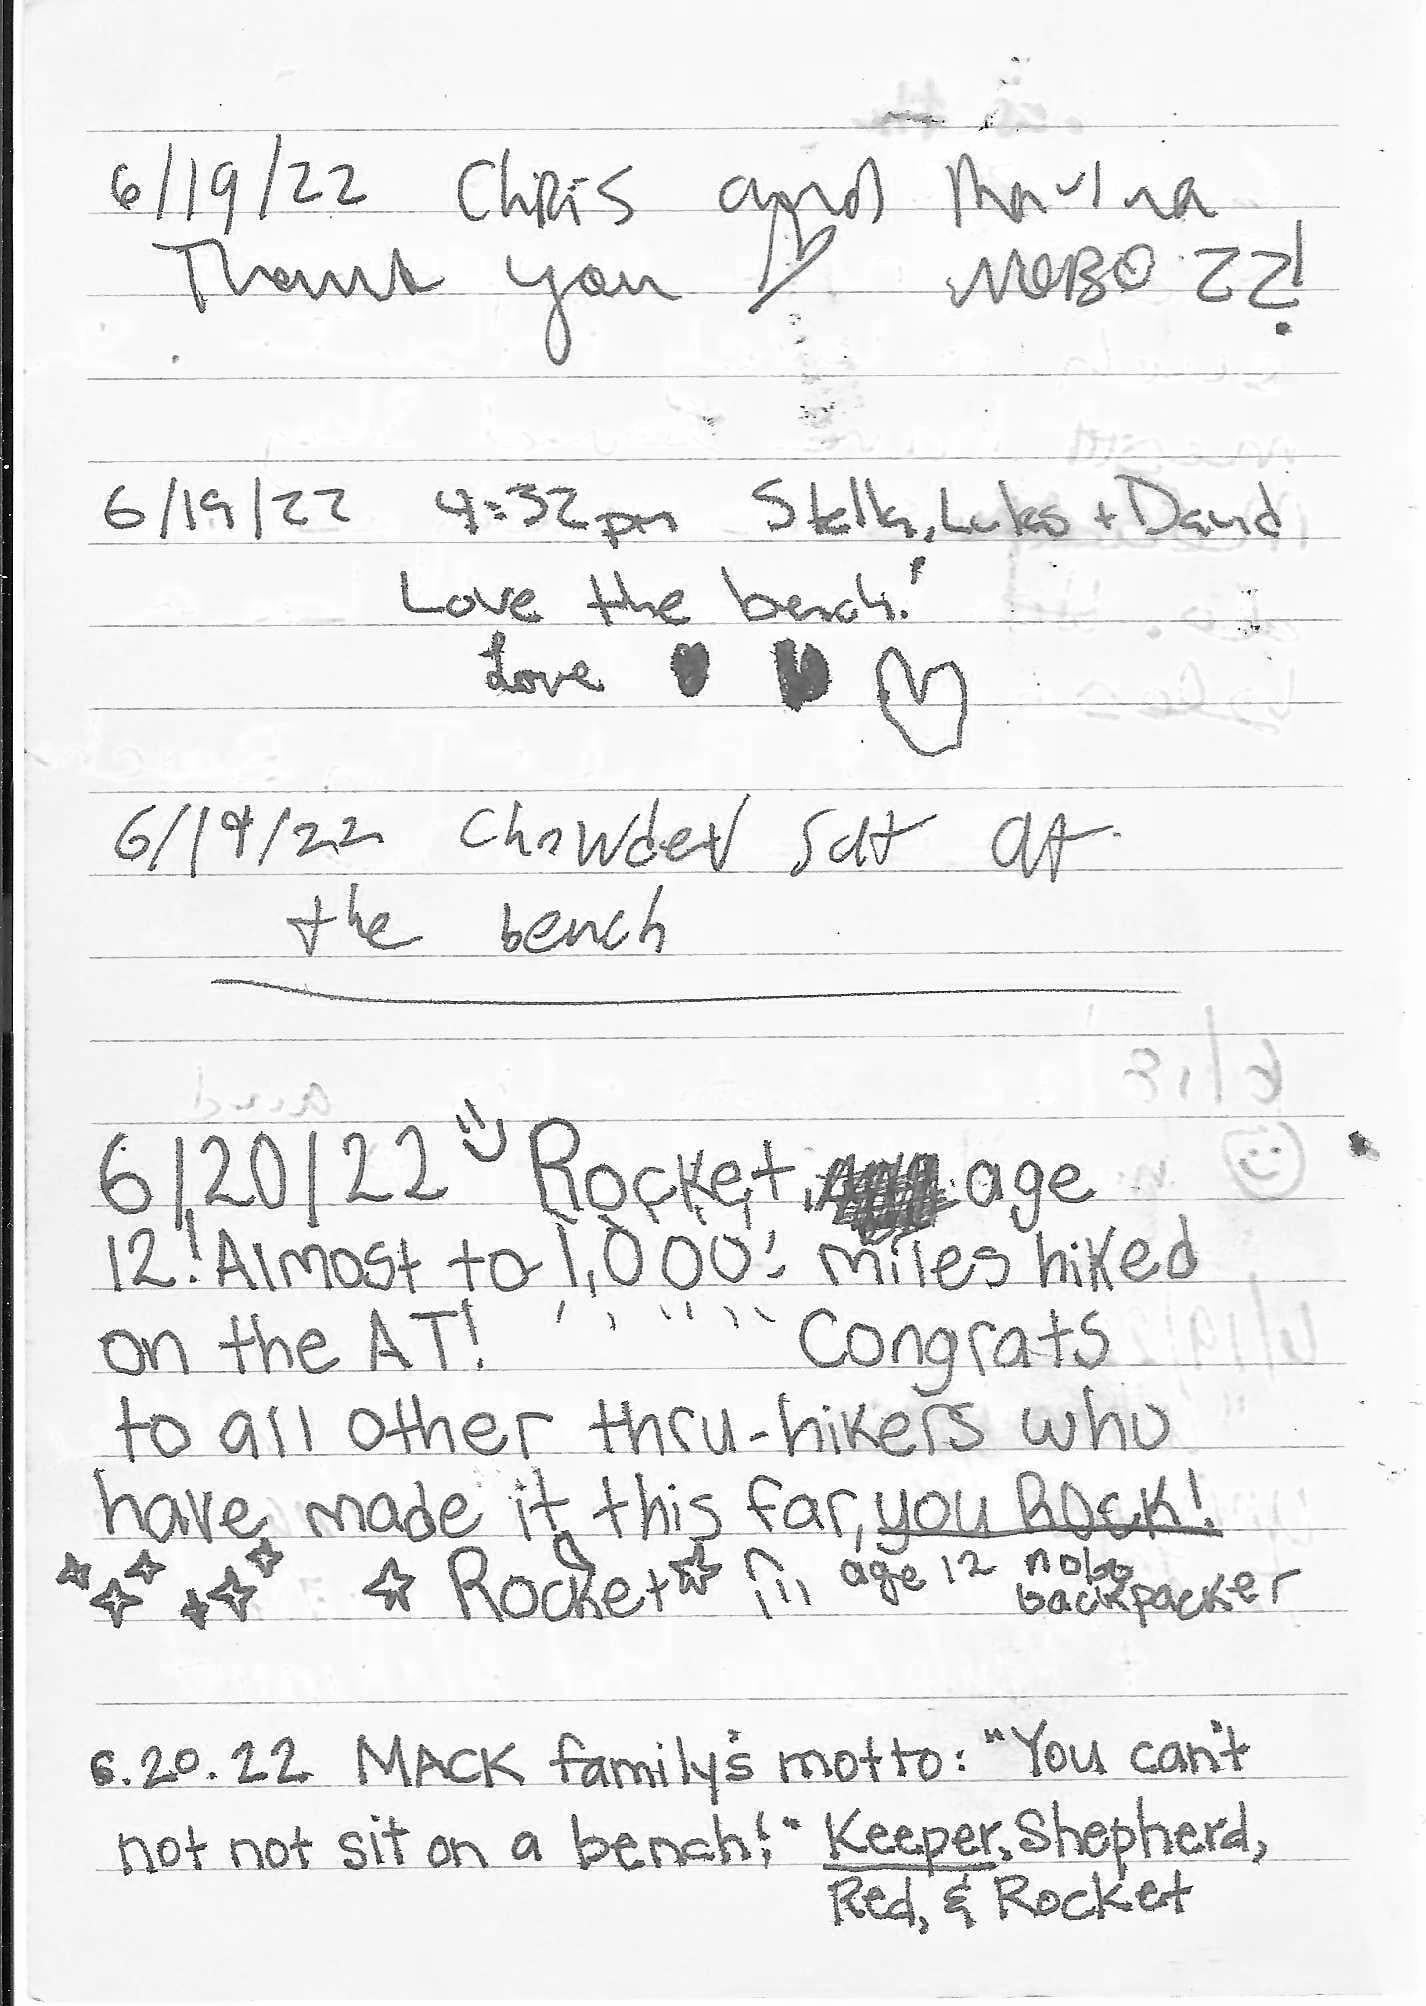 6/19/22 Chris and
Thank you NOBO 22!
6/19/22 4:32pm Stella, Lukas + David
Love the bench!
Love
6/19/22 Chowder sat at
the bench
6/20/22 Rocket, age
12! Almost to 1,000! miles hiked
on the AT! Congrats
to all other thru-hikers who
have made it this far, you ROCK!
Rocket age 12 nobo
backpacker
6.20.22 MACK family's motto: "You can't
not not sit on a bench!" Keeper, Shepherd,
Red, & Rocket